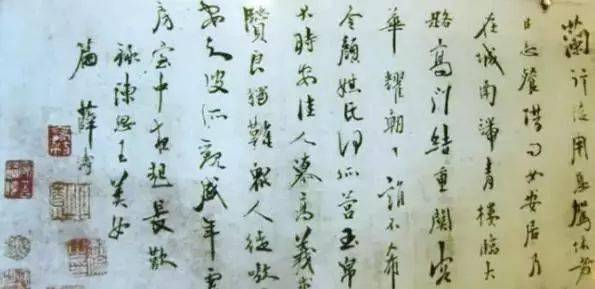 蘭行徒用息駕休者
以忘餐借問女安居乃
在城南端青樓臨大
路高門結重關容
華耀朝日誰不希
令顏媒氏何所營玉帛
不時安佳人慕高義求
賢良獨難眾人徒嗷
安知彼所觀盛年處
房室中夜起長歎
錄陳思王美女
篇 薛濤